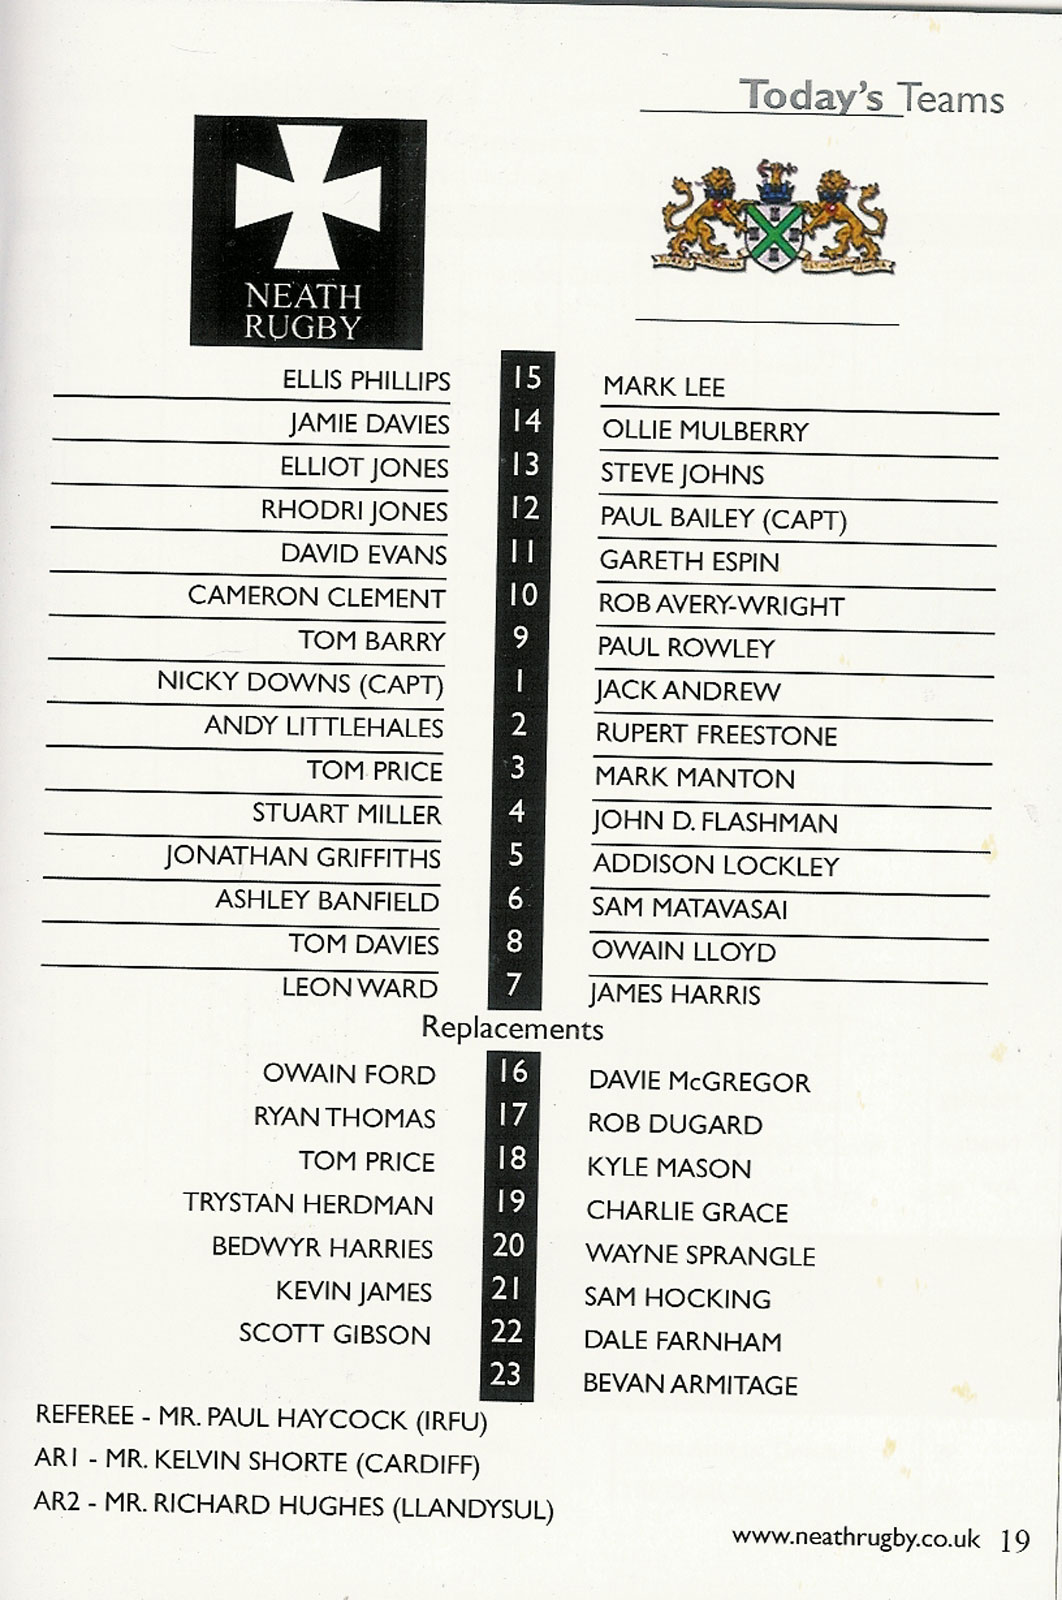 Today's Teams
NEATH
RUGBY
ELLIS PHILLIPS 15 MARK LEE
JAMIE DAVIES 14 OLLIE MULBERRY
ELLIOT JONES 13 STEVE JOHNS
RHODRI JONES 12 PAUL BAILEY (CAPT)
DAVID EVANS 11 GARETH ESPIN
CAMERON CLEMENT 10 ROB AVERY-WRIGHT
TOM BARRY 9 PAUL ROWLEY
NICKY DOWNS (CAPT) 1 JACK ANDREW
ANDY LITTLEHALES 2 RUPERT FREESTONE
TOM PRICE 3 MARK MANTON
STUART MILLER 4 JOHN D. FLASHMAN
JONATHAN GRIFFITHS 5 ADDISON LOCKLEY
ASHLEY BANFIELD 6 SAM MATAVASAI
TOM DAVIES 8 OWAIN LLOYD
LEON WARD 7 JAMES HARRIS
Replacements
OWAIN FORD 16 DAVIE McGREGOR
RYAN THOMAS 17 ROB DUGARD
TOM PRICE 18 KYLE MASON
TRYSTAN HERDMAN 19 CHARLIE GRACE
BEDWYR HARRIES 20 WAYNE SPRANGLE
KEVIN JAMES 21 SAM HOCKING
SCOTT GIBSON 22 DALE FARNHAM
23 BEVAN ARMITAGE
REFEREE - MR. PAUL HAYCOCK (IRFU)
AR1 - MR. KELVIN SHORTE (CARDIFF)
AR2 - MR. RICHARD HUGHES (LLANDYSUL)
www.neathrugby.co.uk 19